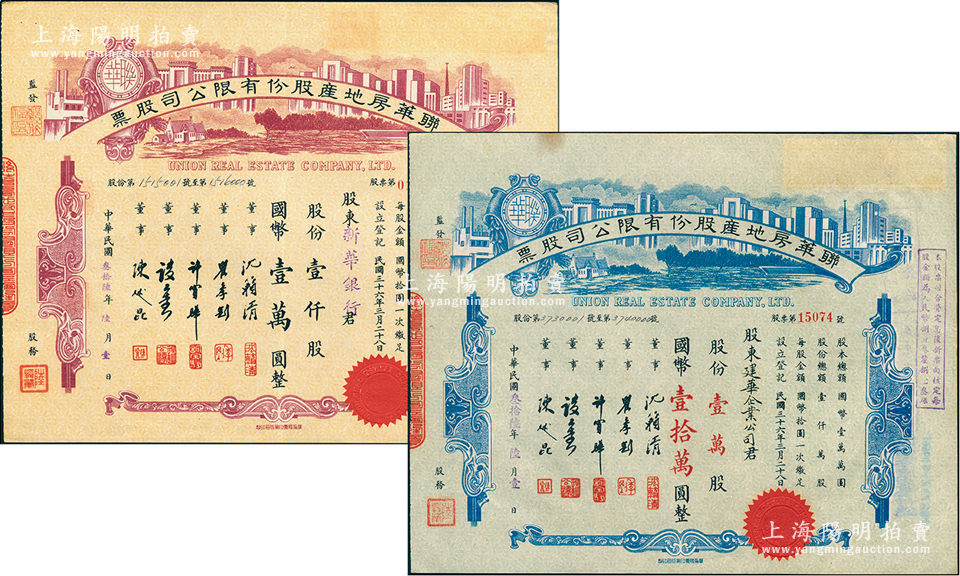 上海陽明拍賣
www.yangmingauction.com
聯華房地產股份有限公司股票
UNION REAL ESTATE COMPANY, LTD.
股份第1515001號至第1516000號
股票第0
每股金額國幣拾圓一次繳足
設立登記民國三十六年三月二十八日
股東新華銀行君
股份壹仟股
國幣壹萬圓整
董事
董事
董事
董事
董事
中華民國叁拾陸年陸月壹日
監發
股務
聯華房地產股份有限公司股票
UNION REAL ESTATE COMPANY, LTD.
股份第3730001號至第3740000號
股票第15074號
股本總額國幣壹萬萬圓
股份總額壹仟萬股
每股金額國幣拾圓一次繳足
設立登記民國三十六年三月二十八日
股東建華企業公司君
股份壹萬股
國幣壹拾萬圓整
董事
董事
董事
董事
董事
中華民國叁拾陸年陸月壹日
監發
股務
上海陽明拍賣
www.yangmingauction.com